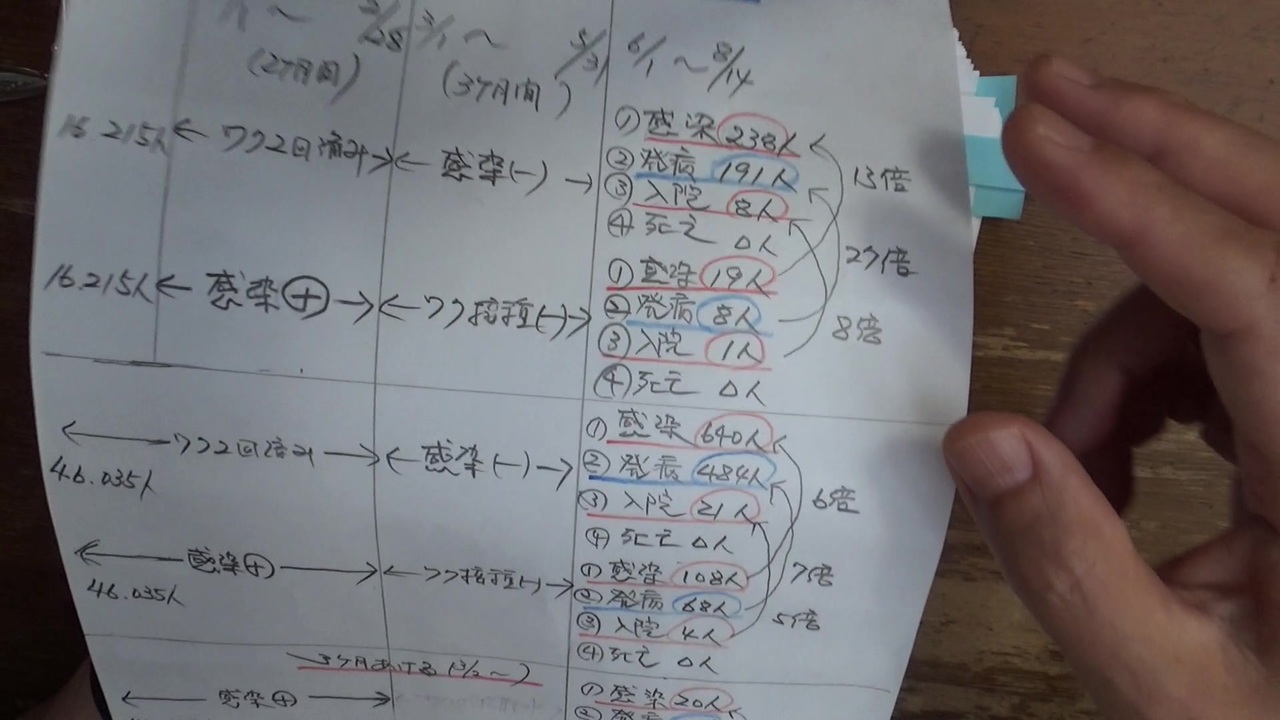 ~ 2/28 3/1 ~ 5/31 6/1 ~ 8/14
(2ヶ月間) (3ヶ月間)
16.215人 ← ワク2回済み → ← 感染(-) →
① 感染 238人
② 発病 191人
③ 入院 8人
④ 死亡 0人
13倍
27倍
8倍
16.215人 ← 感染⊕ → ← ワク接種(-) →
① 感染 19人
② 発病 8人
③ 入院 1人
④ 死亡 0人
← ワク2回済み → ← 感染(-) →
46.035人
① 感染 640人
② 発病 484人
③ 入院 21人
④ 死亡 0人
6倍
7倍
5倍
← 感染⊕ → ← ワク接種(-) →
46.035人
① 感染 108人
② 発病 68人
③ 入院 4人
④ 死亡 0人
3ヶ月あける (3/2~)
← 感染⊕ →
① 感染 20人
② 発病